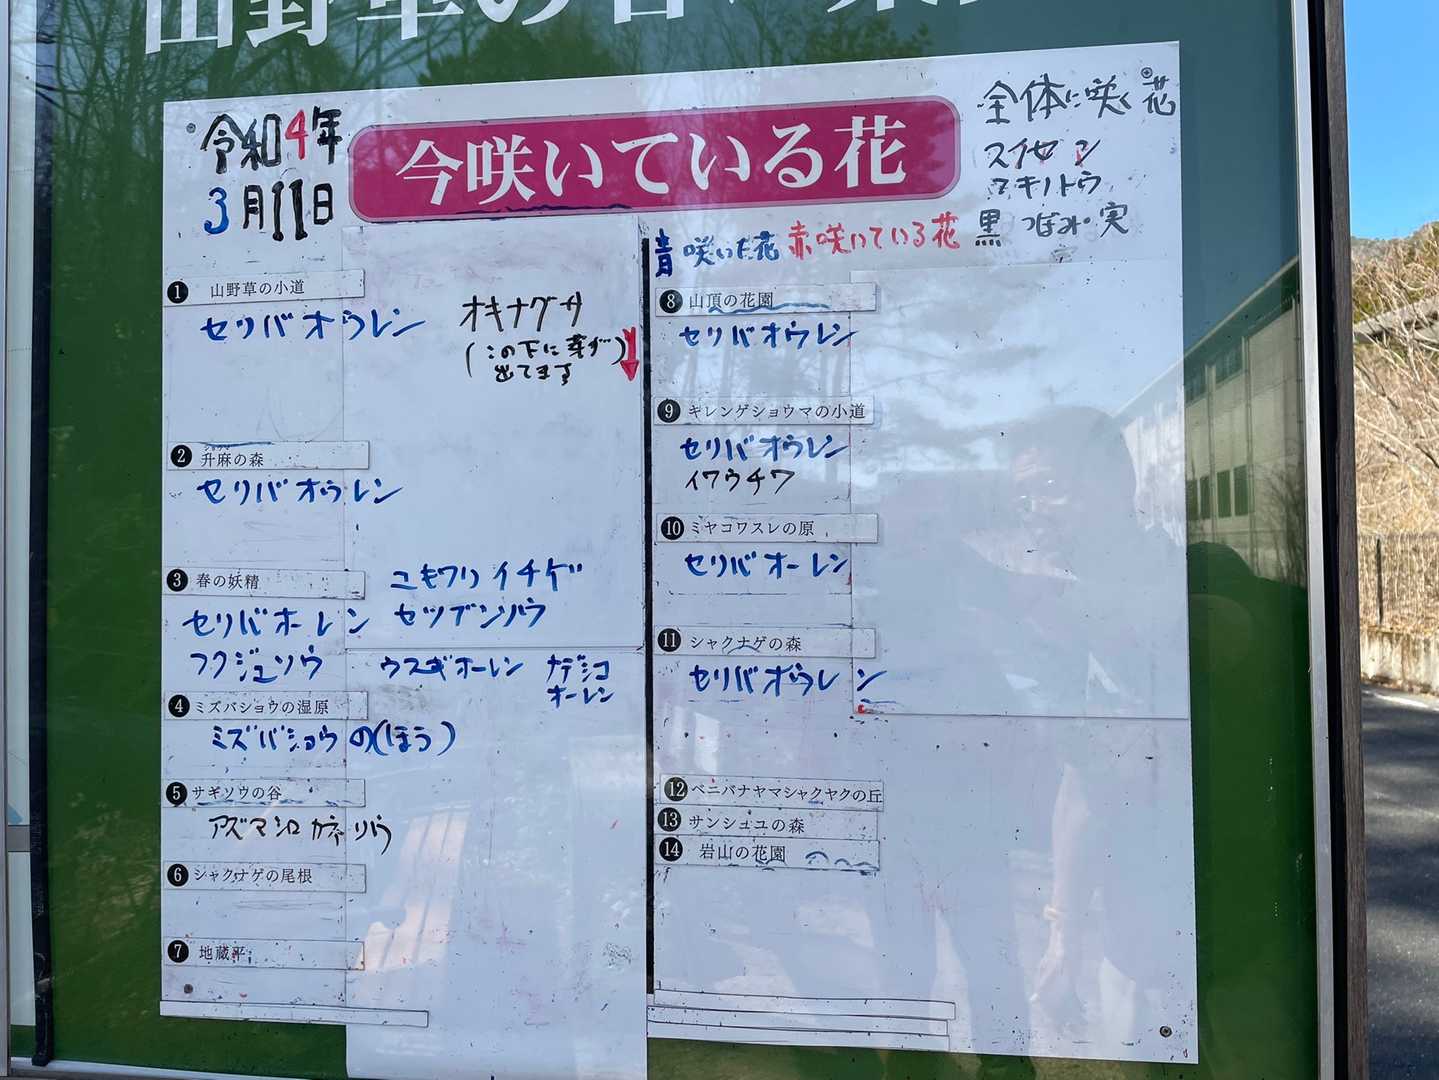 山野草の
令和4年
3月11日
今咲いている花
全体に咲く花
スイセン
フキノトウ
青 咲いた花 赤 咲いている花 黒 つぼみ・実
1 山野草の小道
セリバオウレン
オキナグサ
(この下に芽が
出てます)
2 升麻の森
ショウマ
セリバオウレン
3 春の妖精
セリバオーレン
フクジュソウ
ユキワリイチゲ
セツブンソウ
ウスギオーレン
ナデシコ
オーレン
4 ミズバショウの湿原
ミズバショウの(ほう)
5 サギソウの谷
アズマシロカネソウ
6 シャクナゲの尾根
7 地蔵平
8 山頂の花園
セリバオウレン
9 キレンゲショウマの小道
セリバオウレン
イワウチワ
10 ミヤコワスレの原
セリバオーレン
11 シャクナゲの森
セリバオウレン
12 ベニバナヤマシャクヤクの丘
13 サンシュユの森
14 岩山の花園